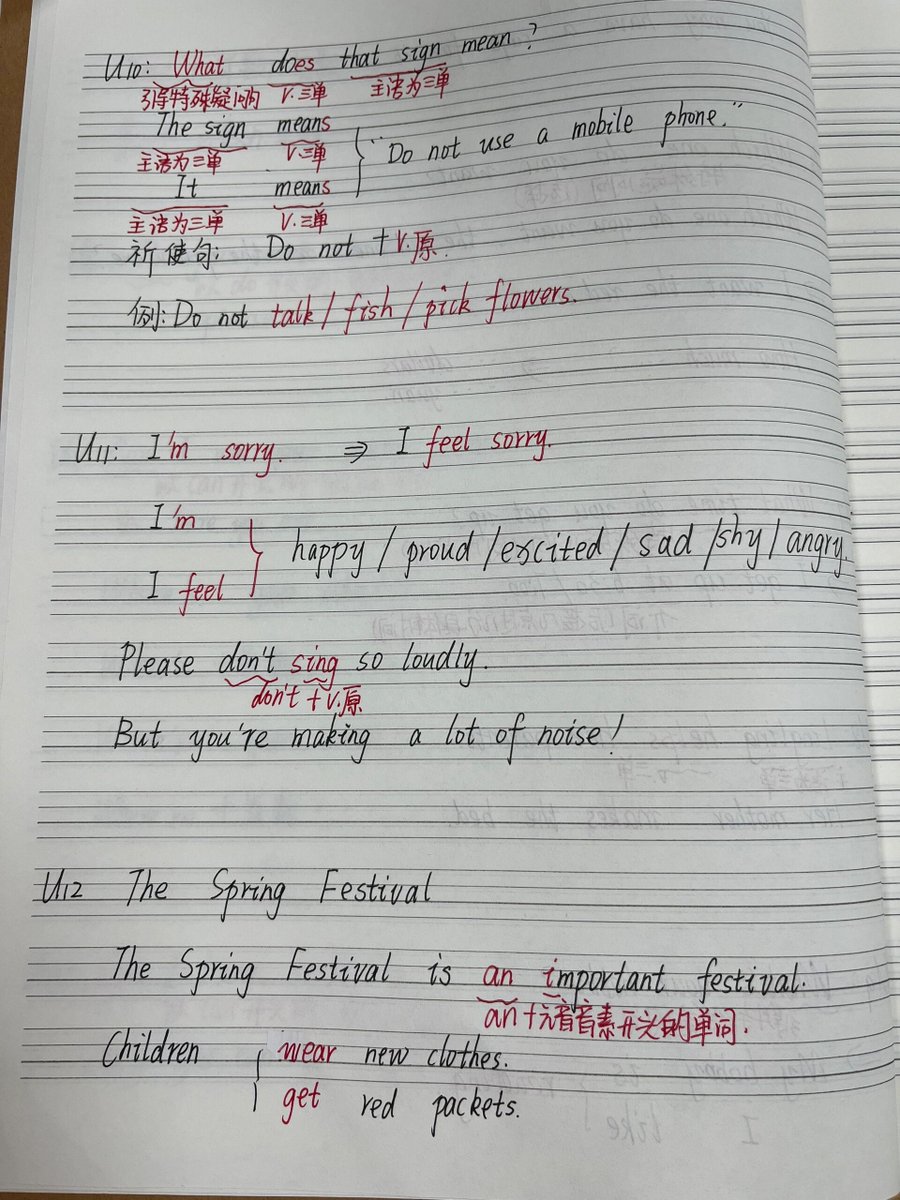 U10: What does that sign mean?
引导特殊疑问 V.三单 主语为三单
The sign means
主语为三单 V.三单
"Do not use a mobile phone."
It means
主语为三单 V.三单
祈使句: Do not +V.原.
例: Do not talk/ fish / pick flowers.
U11: I'm sorry. ⇒ I feel sorry.
I'm
happy / proud /excited / sad /shy / angry.
I feel
Please don't sing so loudly.
don't +V.原
But you're making a lot of noise!
U12 The Spring Festival
The Spring Festival is an important festival.
an+元音音素开头的单词.
Children wear new clothes.
get red packets.